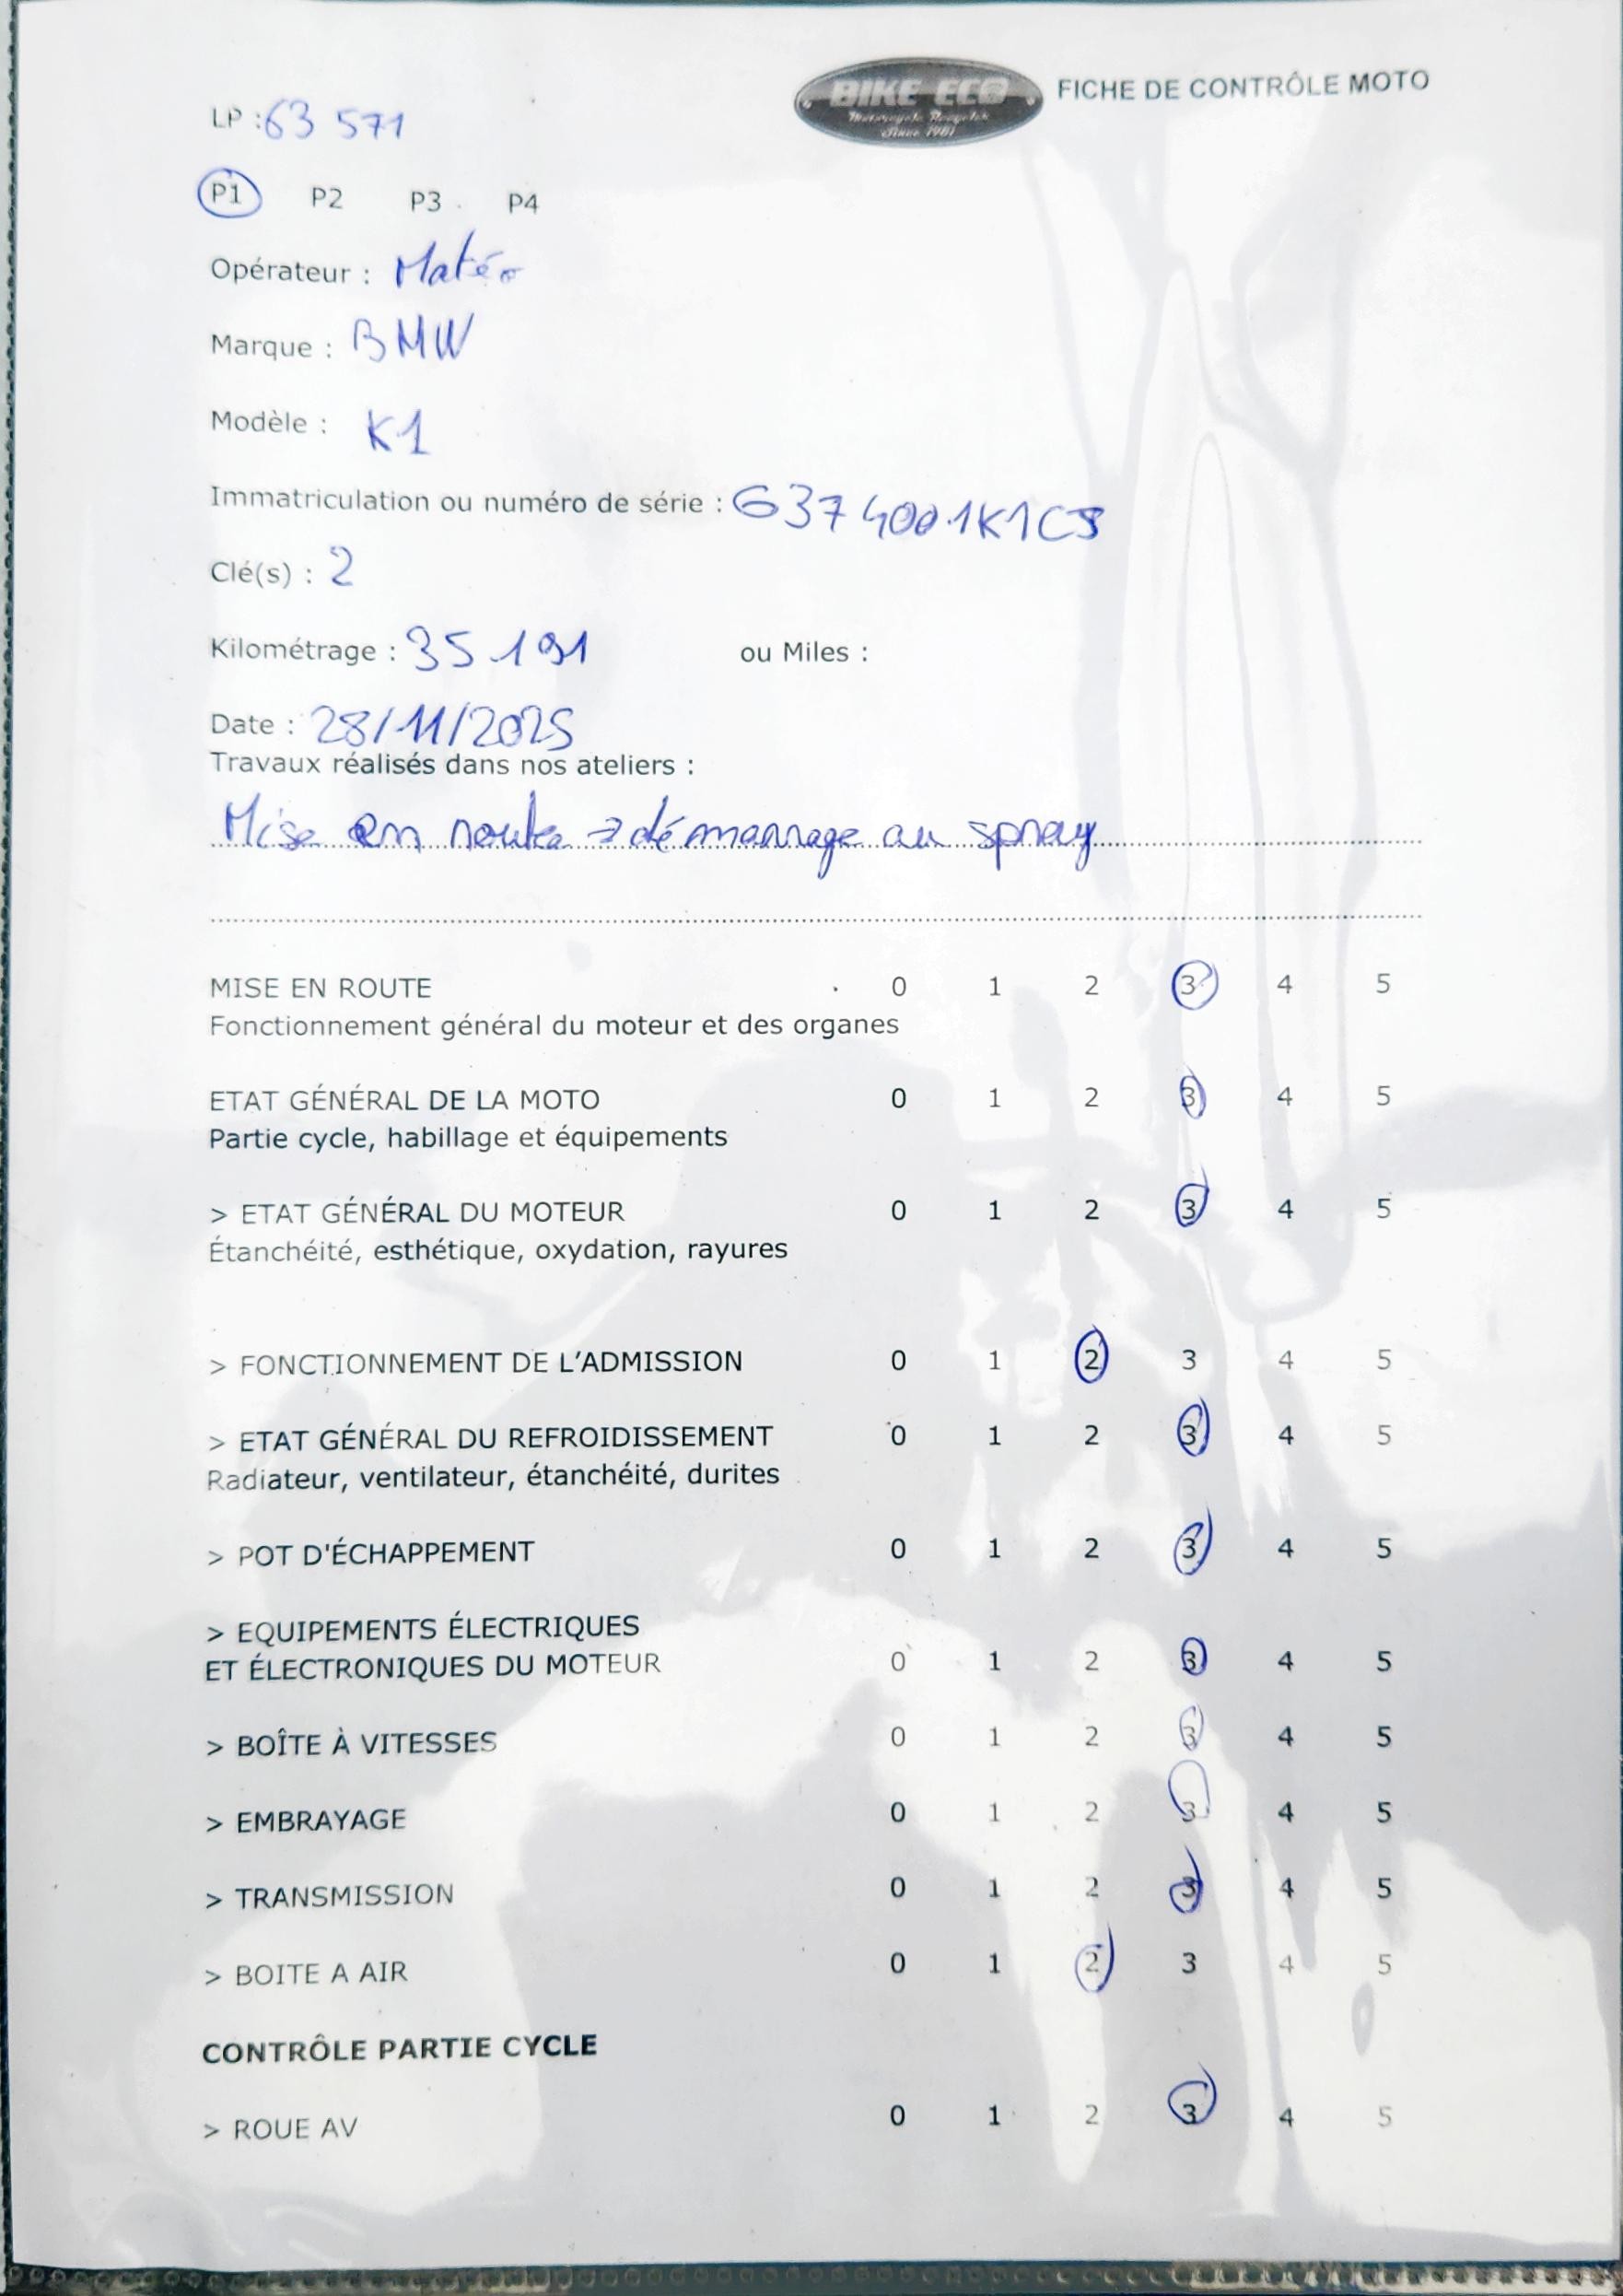 BIKE ECO
Motorcycle Recycler
Since 1981
FICHE DE CONTRÔLE MOTO
LP : 63 571
P1 P2 P3 P4
Opérateur : Matéo
Marque : BMW
Modèle : K1
Immatriculation ou numéro de série :
Clé(s) : 2
Kilométrage : 35 191 ou Miles :
Date : 28/11/2025
Travaux réalisés dans nos ateliers :
Mise en route → démarrage au spray
MISE EN ROUTE 0 1 2 3 4 5
Fonctionnement général du moteur et des organes
ETAT GÉNÉRAL DE LA MOTO 0 1 2 3 4 5
Partie cycle, habillage et équipements
> ETAT GÉNÉRAL DU MOTEUR 0 1 2 3 4 5
Étanchéité, esthétique, oxydation, rayures
> FONCTIONNEMENT DE L'ADMISSION 0 1 2 3 4 5
> ETAT GÉNÉRAL DU REFROIDISSEMENT 0 1 2 3 4 5
Radiateur, ventilateur, étanchéité, durites
> POT D'ÉCHAPPEMENT 0 1 2 3 4 5
> EQUIPEMENTS ÉLECTRIQUES
ET ÉLECTRONIQUES DU MOTEUR 0 1 2 3 4 5
> BOÎTE À VITESSES 0 1 2 3 4 5
> EMBRAYAGE 0 1 2 3 4 5
> TRANSMISSION 0 1 2 3 4 5
> BOITE A AIR 0 1 2 3 4 5
CONTRÔLE PARTIE CYCLE
> ROUE AV 0 1 2 3 4 5